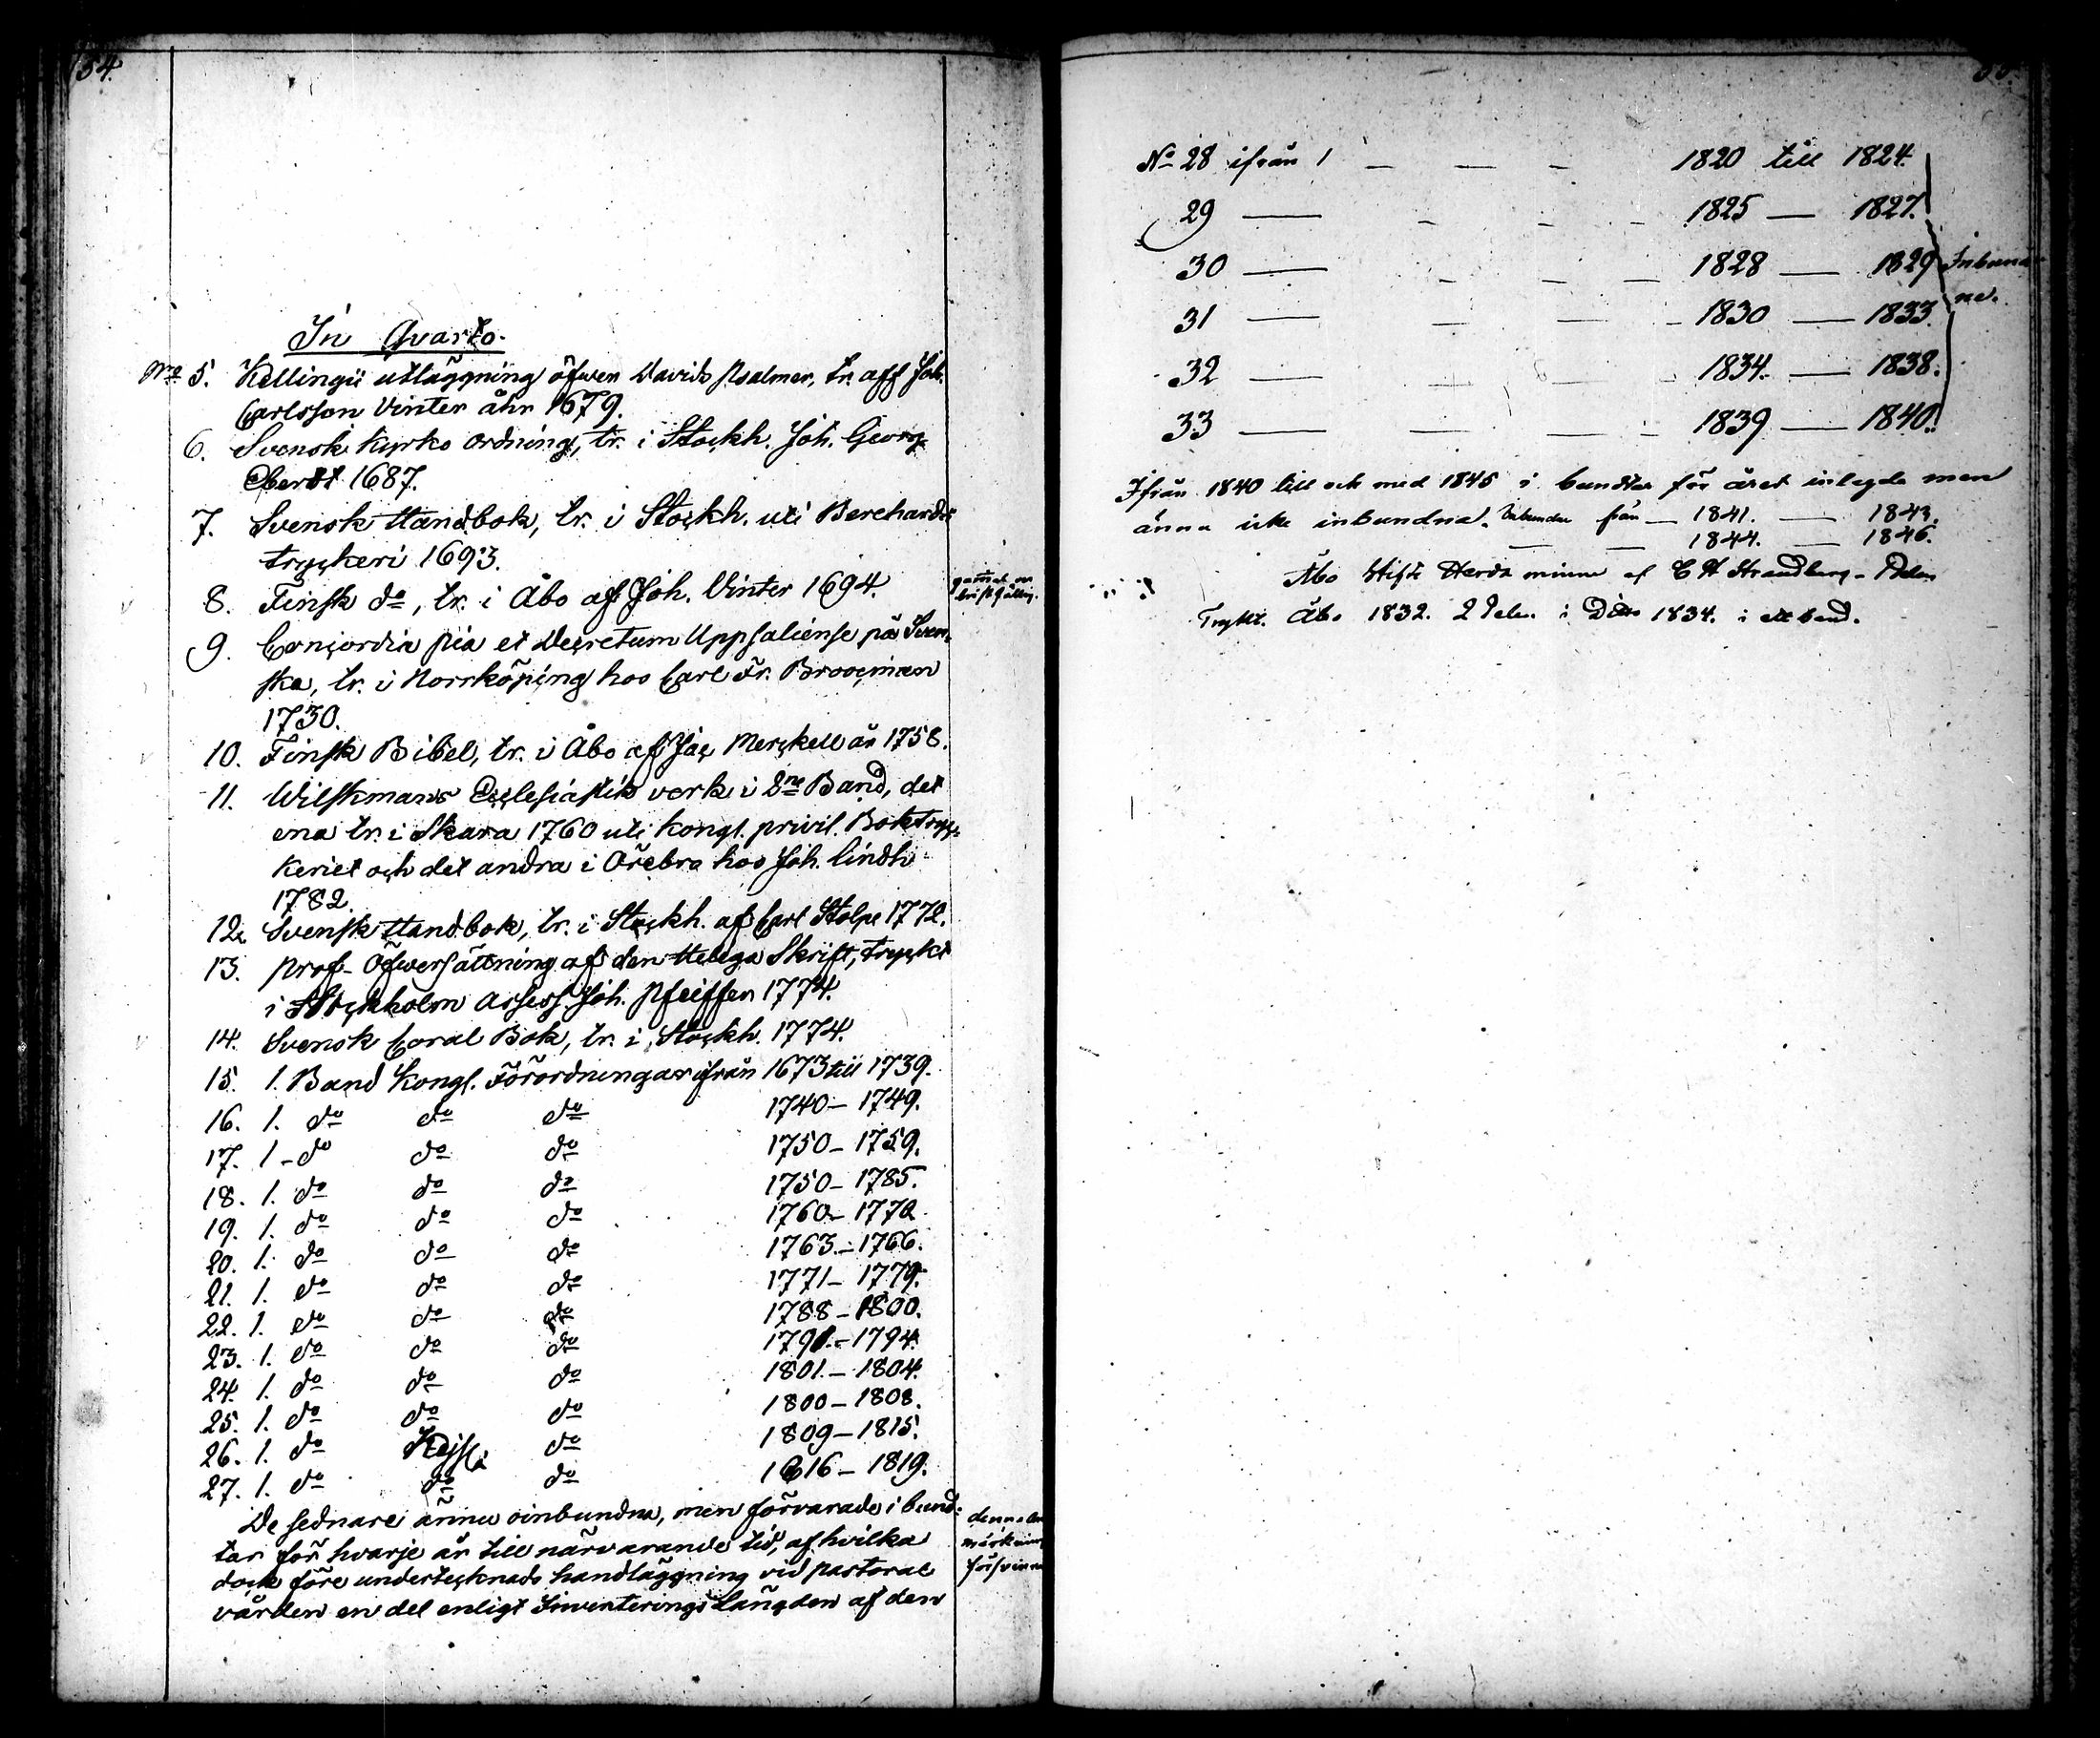 54.
In Qvarto.
No 5. Kellingii utläggning öfwer Davids Psalmer, tr. aff Joh.
Carlsson Vinter åhr 1679.
6. Svensk Kyrko ordning, tr. i Stockh. Joh. Georg
Eberdt 1687.
7. Svensk Handbok, tr. i Stockh. uti Berchardi
tryckeri 1693.
8. Finsk do, tr. i Åbo af Joh. Vinter 1694. gammal o
bristfällig.
9. Concordia pia et Decretum Uppsaliense på Sven-
ska, tr. i Norrköping hos Carl Fr. Broocman
1730.
10. Finsk Bibel, tr. i Åbo af Jac Merckell år 1758.
11. Wilskmans Ecclesiastik verk i 2ne Band, det
ena tr. i Skara 1760 uti Kongl. privil. Boktryc-
keriet och det andra i Örebro hos Joh. Lindh
1782.
12. Svensk Handbok, tr. i Stockh. af Carl Stolpe 1772.
13. Prof-Öfwersättning af den Heliga Skrift, tryckt
i Stockholm Assess. Joh. Pfeiffer 1774.
14. Svensk Coral Bok, tr. i Stockh. 1774.
15. 1. Band Kongl. Förordningar ifrån 1673 till 1739.
16. 1. do do do 1740 - 1749.
17. 1 - do do do 1750 - 1759.
18. 1. do do do 1750 - 1785.
19. 1. do do do 1760 - 1772.
20. 1. do do do 1763. - 1766.
21. 1. do do do 1771 - 1779.
22. 1. do do do 1788 - 1800.
23. 1. do do do 1791. - 1794.
24. 1. do do do 1801. - 1804.
25. 1. do do do 1800 - 1808.
26. 1. do Kejsl. do 1809 - 1815.
27. 1. do do do 1816 - 1819.
De sednare ännu oinbundna, men förvarade i bund-
tar för hvarje år till närvarande tid, af hvilka
dock före undertecknads handläggning vid pastoral
vården en del enligt Inventerings Längden af den
denna an
märkning
försvinner
No 28 ifrån 1 — — — 1820 till 1824.
29 — - - - 1825 — 1827.
30 — - - — 1828 — 1829 Inbund
31 — — — - 1830 — 1833. ne.
32 — — — — 1834. — 1838.
33 — — — - 1839 — 1840.
Ifrån 1840 till och med 1845 i bundtar för året inlagde men
ännu icke inbundna. Inbundne från — 1841. — 1843.
— — 1844. — 1846.
Åbo Stifts Herda minne af C H Strandberg - Delen
Tryckt. Åbo 1832. 2 Delen i Ditto 1834. i ett band.